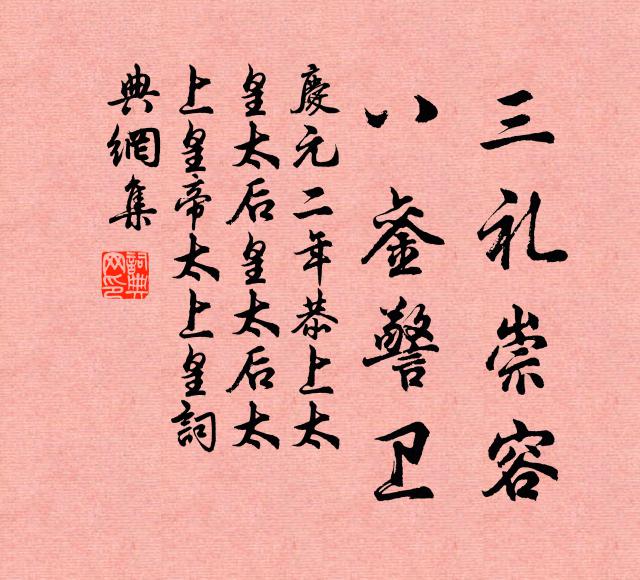 三礼崇容
八銮警卫
慶元二年恭上太
皇太后皇太后太
上皇帝太上皇詞
典網集
詞典網印